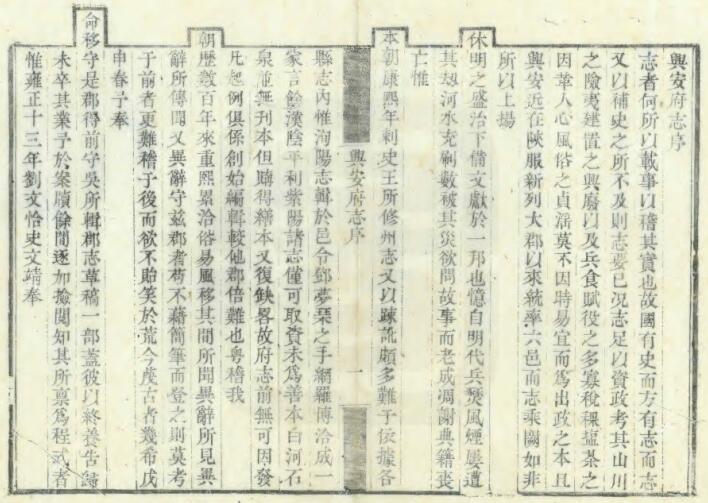 興安府志序
志者何所以載事以稽其實也故國有史而方有志而志
又以補史之所不及則志要已況志足以資政考其山川
之險夷建置之興廢以及兵食賦役之多寡稅稞塩茶之
因革人心風俗之貞淫莫不因時易宜而爲出政之本且
興安近在陝服新列大郡以來統率六邑而志乘闕如非
所以上揚
休明之盛治下備文獻於一邦也憶自明代兵燹風煙屢遭
其刼河水充刷數被其災欲問故事而老成凋謝典籍喪
亡惟
本朝康熙年刺史王所修州志又以踈訛頗多難于依據各
興安府志序
一
縣志內惟洵陽志輯於邑令鄧夢琴之手網羅博洽成一
家言餘漢陰平利紫陽諸志僅可取資未爲善本白河石
泉並無刊本但購得繕本又復缺畧故府志前無可因發
凡起例俱係創始編輯較他郡倍難也粤稽我
朝歷數百年來重熙累洽俗易風移其間所聞異辭所見異
辭所傳聞又異辭守茲郡者苟不藉簡筆而登之則莫考
于前者更難稽于後而欲不貽笑於荒今茂古者幾希戊
申春予奉
命移守是郡得前守吳所輯郡志草稿一部蓋彼以終養告歸
未卒其業予於案牘餘閒逐加撿閱知其所禀爲程式者
惟雍正十三年劉文恪史文靖奉